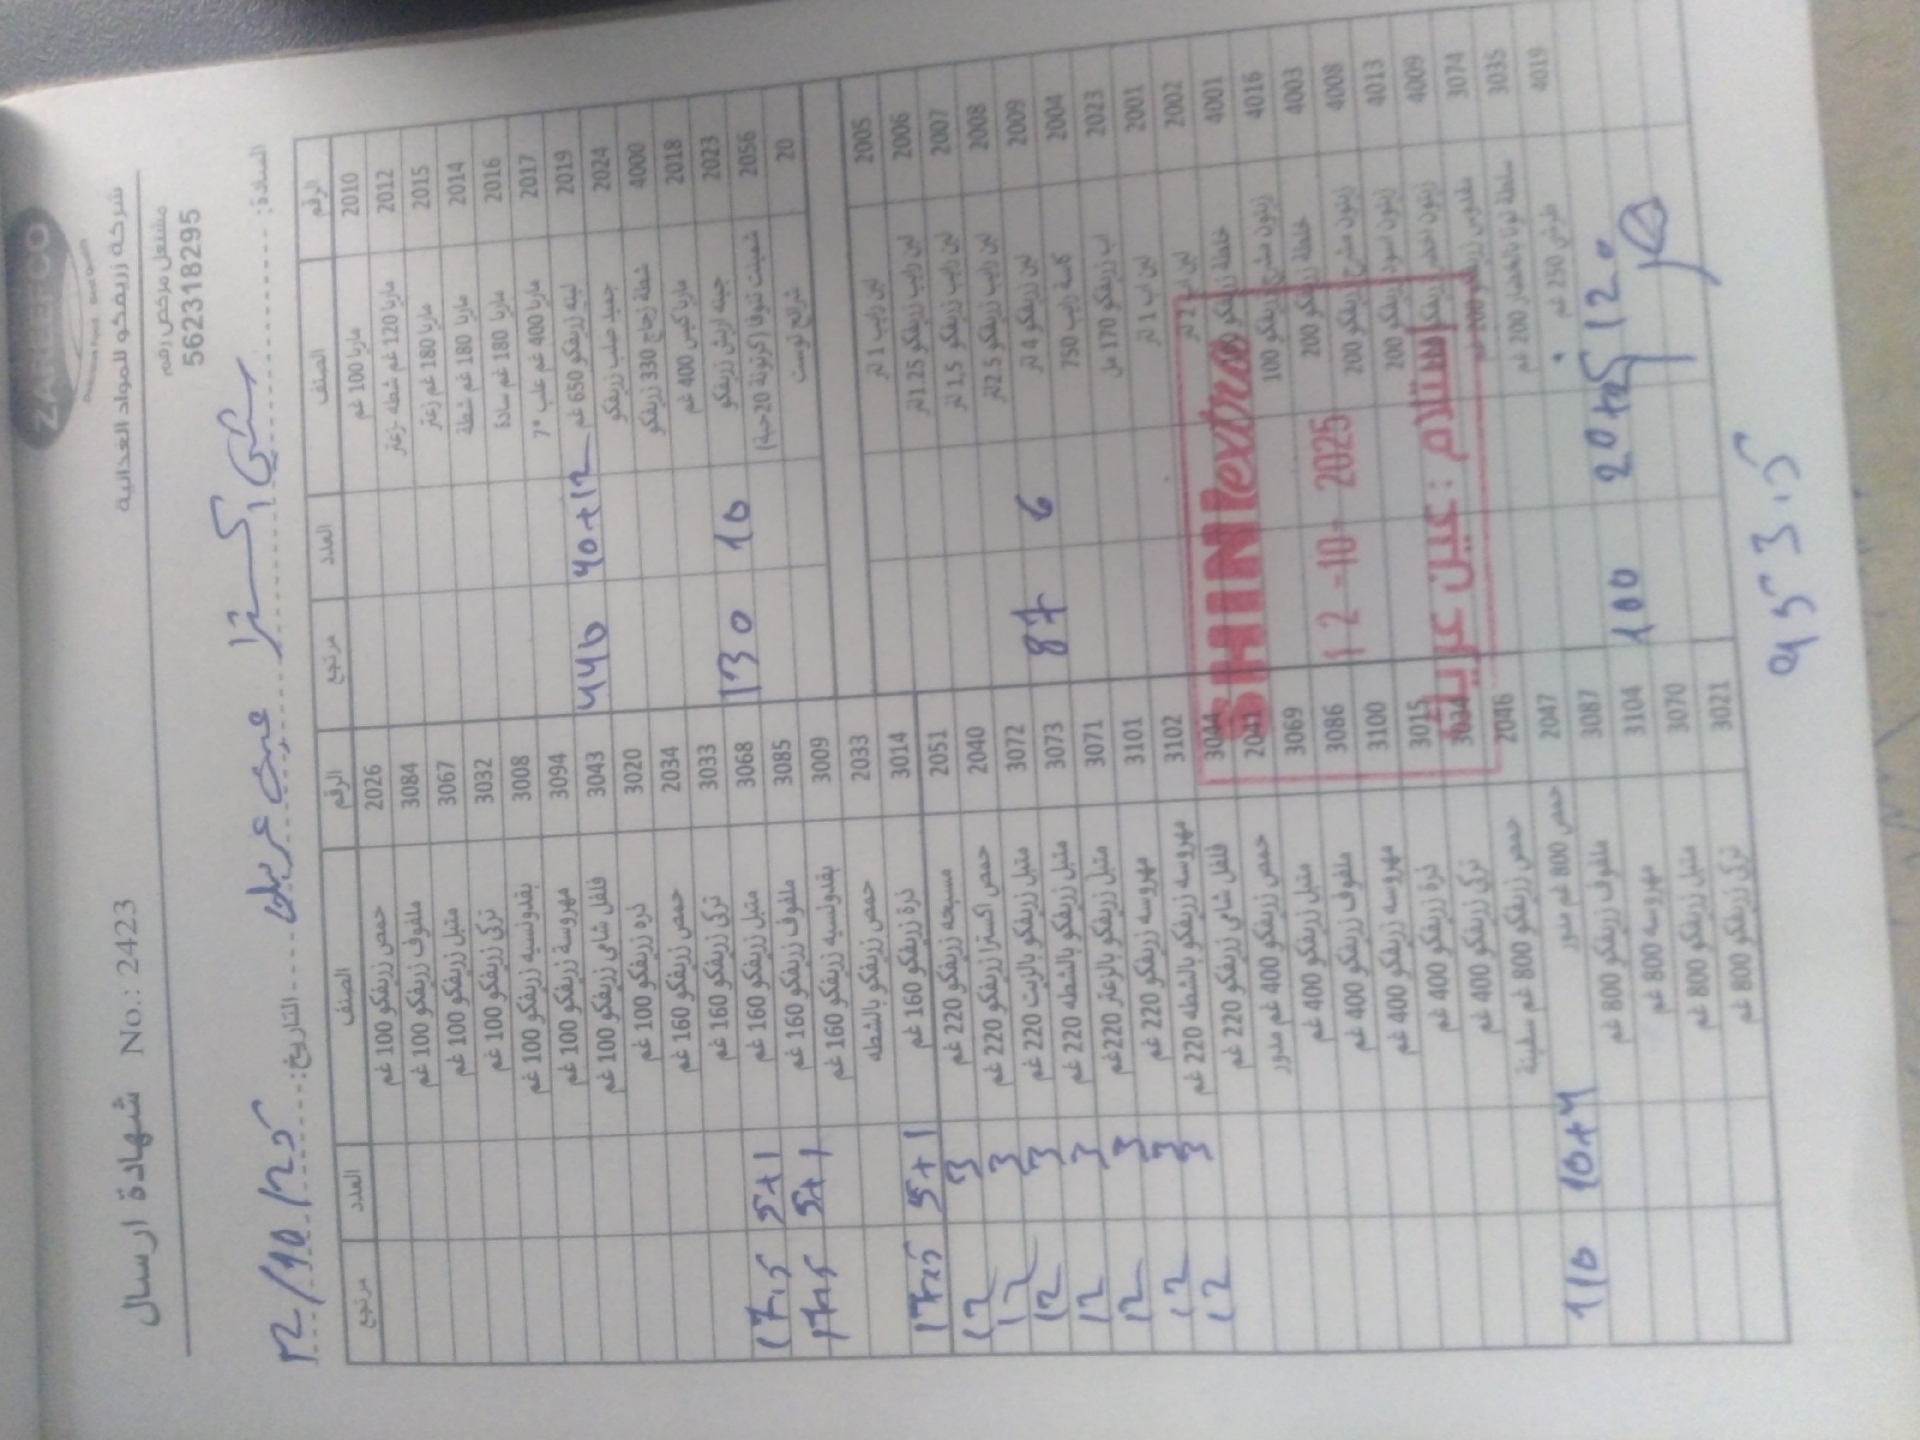 ZAREEFCO
شركة زريفكو للمواد الغذائية
مشتغل مرخص رقم
562318295
شهادة ارسال No.: 2423
السادة: شني اكسترا عين عريك التاريخ: 12/10/25
الرقم الصنف العدد مرتجع
2010 مارتا 100 غم
2012 مارتا 120 غم شطة -زعتر
2015 مارتا 180 غم زعتر
2014 مارتا 180 غم شطة
2016 مارتا 180 غم سادة
2017 مارتا 400 غم علب *7
2019 لبنه زريفكو 650 غم 40+12 440
2024 جميد صلب زريفكو
4000 شطة زجاج 330 زريفكو
2018 مارتا كيس 400 غم
2023 جبنه ارتش زريفكو 10 130
2056 شمينت تنوفا (كرتونة 20حبة)
20 شرائح توست
2005 لبن رايب 1 لتر
2006 لبن رايب زريفكو 1.25 لتر
2007 لبن رايب زريفكو 1,5 لتر
2008 لبن رايب زريفكو 2.5لتر
2009 لبن زريفكو 4 لتر 6 87
2004 كاسة رايب 750
2023 اب زريفكو 170 مل
2001 لبن اب 1 لتر
2002 لبن اب 2 لتر
4001 خلطة زريفكو
4016 زيتون مشرح زريفكو 100
4003 خلطة زريفكو 200
4008 زيتون مشرح زريفكو 200
4013 زيتون اسود زريفكو 200
4009 زيتون اخضر زريفكو
3074 مقدوس زريفكو
3035 سلطة تونا بالخضار 200 غم
4019 طرشي 250 غم
20+5 100
الرقم الصنف العدد مرتجع
2026 حمص زريفكو 100 غم
3084 ملفوف زريفكو 100 غم
3067 متبل زريفكو 100 غم
3032 تركي زريفكو 100 غم
3008 بقدونسيه زريفكو 100 غم
3094 مهروسة زريفكو 100 غم
3043 فلفل شامي زريفكو 100 غم
3020 ذره زريفكو 100 غم
2034 حمص زريفكو 160 غم
3033 تركي زريفكو 160 غم
3068 متبل زريفكو 160 غم 5+1 17.5
3085 ملفوف زريفكو 160 غم 5+1 17.5
3009 بقدونسيه زريفكو 160 غم
2033 حمص زريفكو بالشطه
3014 ذرة زريفكو 160 غم 5+1 17.5
2051 مسبحه زريفكو 220 غم 3 12
2040 حمص اكسترا زريفكو 220 غم 3 12
3072 متبل زريفكو بالزيت 220 غم 3 12
3073 متبل زريفكو بالشطه 220 غم 3 12
3071 متبل زريفكو بالزعتر 220غم 3 12
3101 مهروسه زريفكو 220 غم 3 12
3102 مهروسه زريفكو بالشطه 220 غم 3 12
3044 فلفل شامي زريفكو 220 غم
2041 حمص زريفكو 400 غم مدور
3069 متبل زريفكو 400 غم
3086 ملفوف زريفكو 400 غم
3100 مهروسه زريفكو 400 غم
3015 ذرة زريفكو 400 غم
3034 تركي زريفكو 400 غم
2046 حمص زريفكو 800 غم سفينة
2047 حمص 800 غم مدور 10+4 110
3087 ملفوف زريفكو 800 غم
3104 مهروسه 800 غم
3070 متبل زريفكو 800 غم
3021 تركي زريفكو 800 غم
SHINI extra
12-10-2025
استلام : عين عريك
953.5